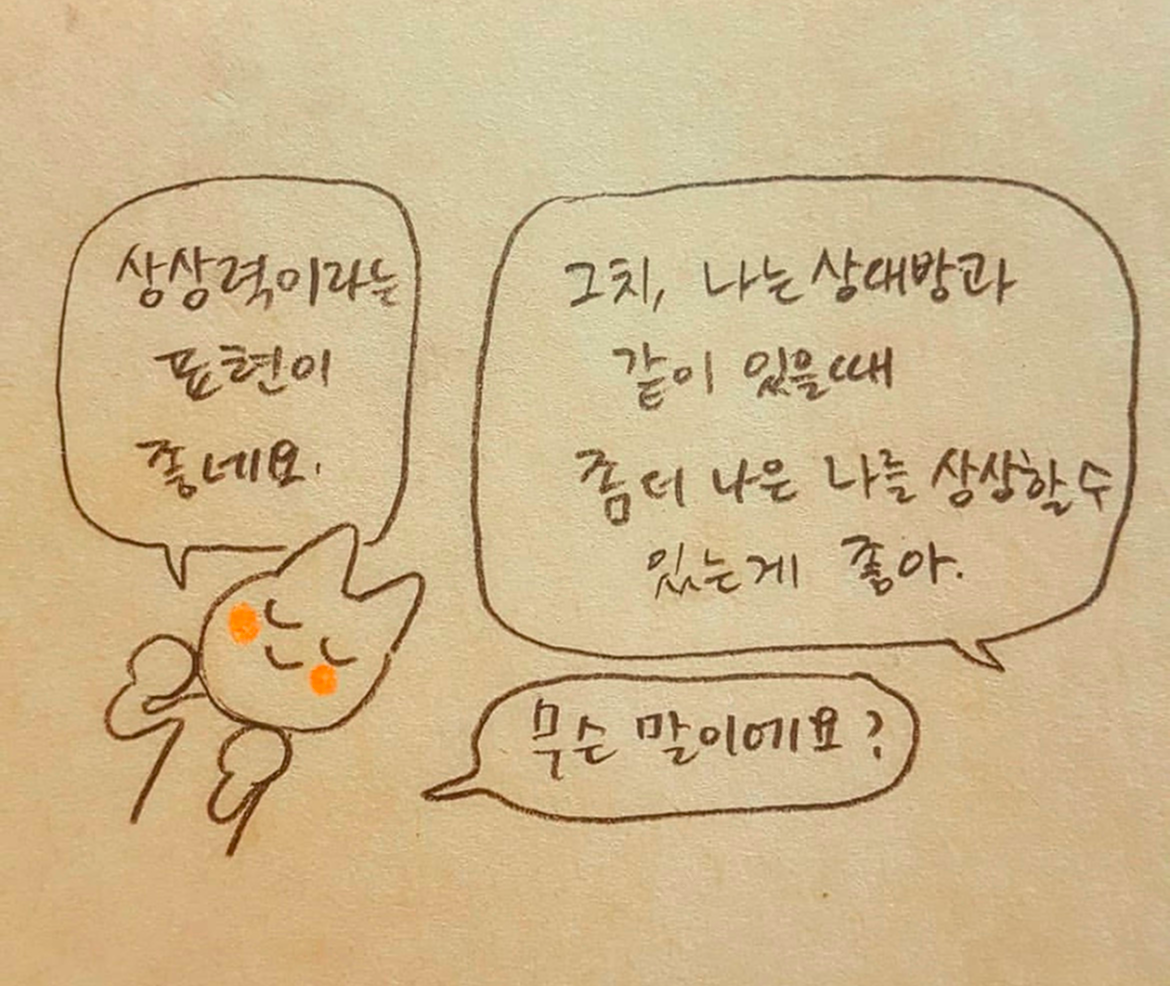 상상력이라는
표현이
좋네요.
그치, 나는 상대방과
같이 있을때
좀더 나은 나를 상상할수
있는게 좋아.
무슨 말이에요?